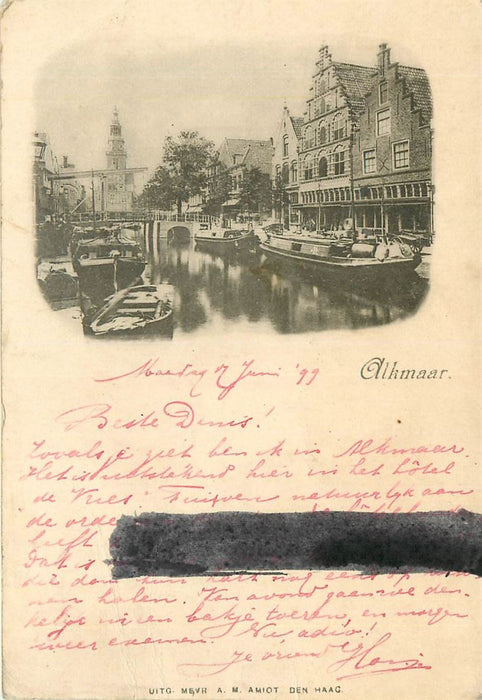 Maandag 17 Juni '99
Alkmaar.
Beste Denis!
Zooals je ziet ben ik in Alkmaar.
Het is uitstekend hier in het hôtel
de Vries. Fuiven natuurlijk aan
de orde
heeft
Dat is
die dan hun hart nog eens op
nen halen. Van avond gaan we den-
kelijk in een bakje toeren, en morgen
weer examen. Nu, adio!
Je vriend
UITG. MEVR A. M. AMIOT DEN HAAG.